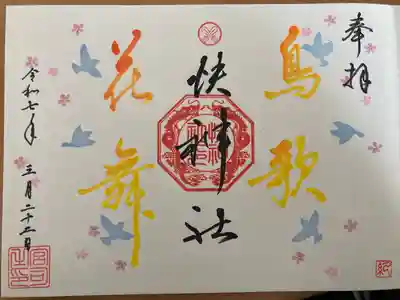 奉拝
鳥歌
快神社
花舞
令和七年
三月二十二日
宮司之印